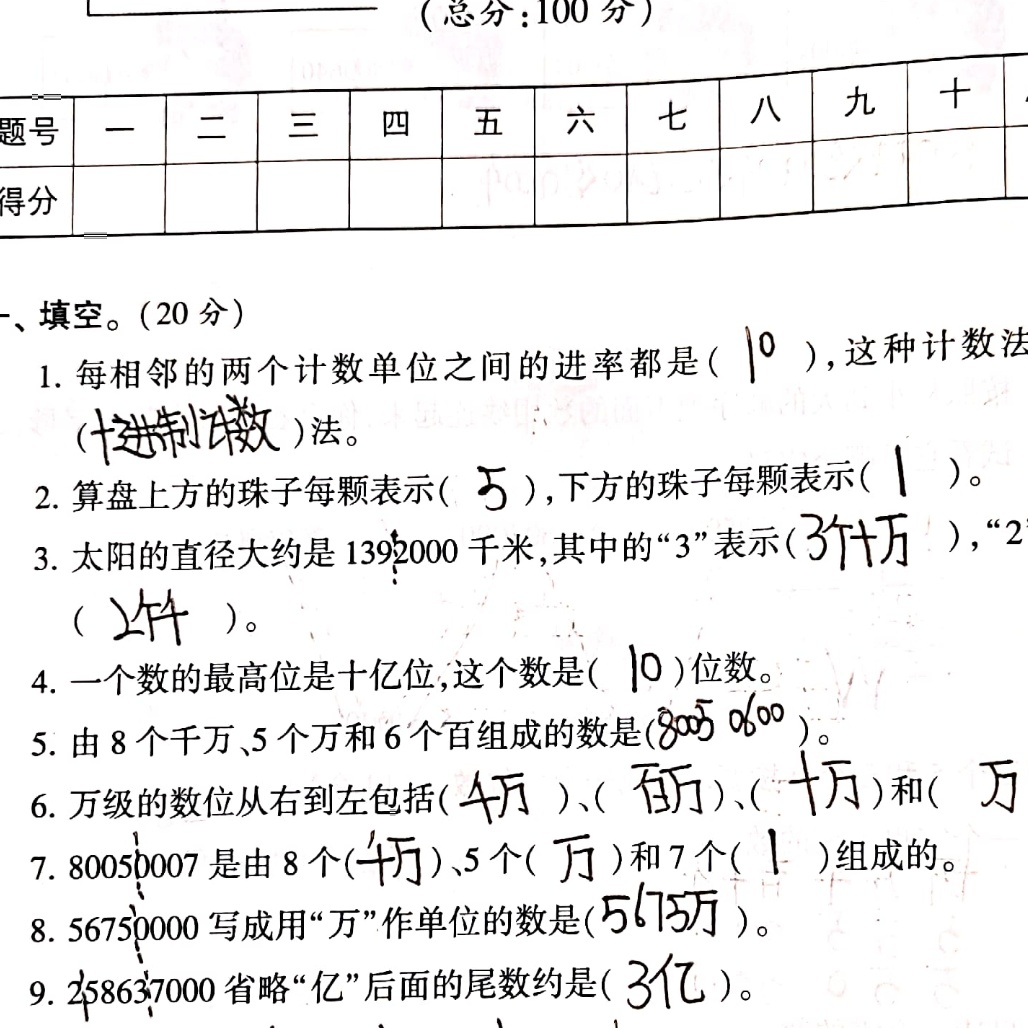 (总分:100 分)
题号 一 二 三 四 五 六 七 八 九 十
得分
一、填空。(20 分)
1. 每相邻的两个计数单位之间的进率都是( 10 ),这种计数法
(十进制计数)法。
2. 算盘上方的珠子每颗表示( 5 ),下方的珠子每颗表示( 1 )。
3. 太阳的直径大约是 1392000 千米,其中的“3”表示(3个十万 ),“2”
( 2个千 )。
4. 一个数的最高位是十亿位,这个数是( 10 )位数。
5. 由 8 个千万、5 个万和 6 个百组成的数是(80050600 )。
6. 万级的数位从右到左包括(千万 )、( 百万)、( 十万)和( 万
7. 80050007 是由 8 个(千万)、5 个( 万 )和 7 个( 1 )组成的。
8. 56750000 写成用“万”作单位的数是(5675万 )。
9. 258637000 省略“亿”后面的尾数约是( 3亿 )。